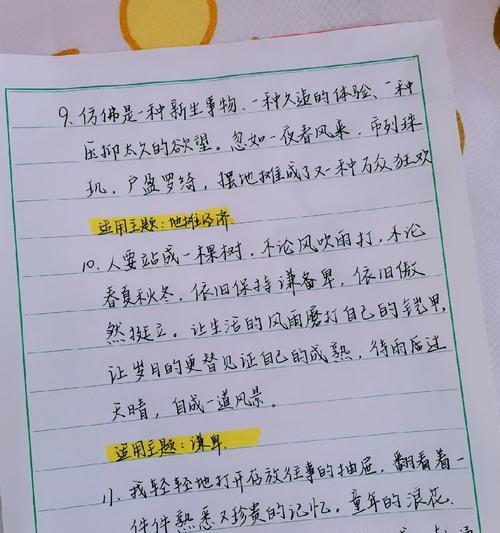 9、仿佛是一种新生事物、一种久违的体验、一种
压抑太久的欲望。忽如一夜春风来，市列珠
玑，户盈罗绮，摆地摊成了又一种万众狂欢
适用主题：地摊经济
10、人要站成一棵树，不论风吹雨打，不论
春夏秋冬，依旧保持谦备卑，依旧傲
然挺立。让生活的风雨磨打自己的铠甲，
让岁月的更替见证自己的成熟，待雨后过
天晴，自成一道风景。
适用主题：谦卑
11、我轻轻地打开存放往事的抽屉，翻看着一
件件熟悉又珍贵的记忆。童年的浪花、